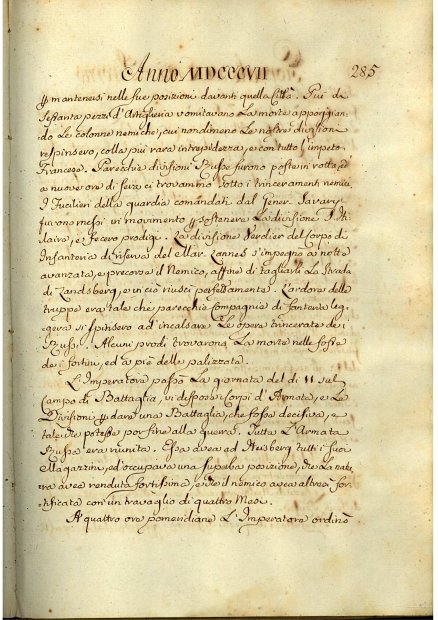 Anno MDCCCVII
285
mantenersi nelle sue posizioni davanti quella Città. Più di
sessanta pezzi d'Artiglieria vomitavano La morte appoggian,
do Le colonne nemiche, cui nondimeno Le nostre divisioni
respinsero, colla più rara intrepidezza, e con tutto l'impeto
Francese. Parecchie divisioni Russe furono poste in rotta, ed
a nuove ore di sera ci trovammo sotto i trinceramenti nemici.
I Fucilieri della guardia comandati dal Gener. Savary
furono messi in movimento sostenere La divisione S. It,
laire, e fecero prodigi. La divisione Verdier del Corpo di
Infanteria di riserva del Mar. Lannes s'impegnò a notte
avanzata, e precorse il Nemico, affine di tagliarli La Strada
di Landsberg, e in ciò riuscì perfettamente. L'ardore delle
truppe era tale che parecchie Compagnie di fanteria leg,
gera si spinsero ad incalzare Le opere trincerate dei
Russi. Alcuni prodi trovarono La morte nelle fosse
dei fortini, ed a piè della palizzata.
L'Imperatore passò La giornata del dì 11 sul
Campo di Battaglia, vi dispose i Corpi d'Armata, e Le
Divisioni dare una Battaglia, che fosse decisiva, e
tale che potesse por fine alla guerra. Tutta L'Armata
Russa era riunita. Essa avea ad Heisberg tutti i suoi
Magazzini, ed occupava una superba posizione, che La natu,
ra avea renduta fortissima, e che il nemico avea altresì for,
tificata con un travaglio di quattro Mesi.
A quattro ore pomeridiane L'Imperatore ordinò